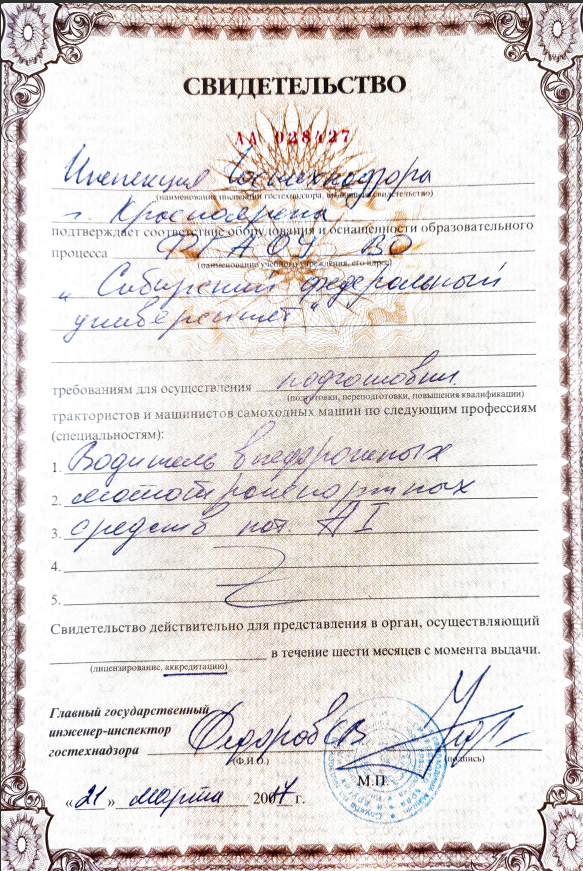 СВИДЕТЕЛЬСТВО
АА 028427
Инспекция Гостехнадзора
(наименование инспекции гостехнадзора, выдавшей свидетельство)
г. Красноярска
подтверждает соответствие оборудования и оснащенности образовательного
процесса ФГАОУ ВО
(наименование учебного учреждения, его адрес)
"Сибирский федеральный
университет"
требованиям для осуществления подготовки
(подготовки, переподготовки, повышения квалификации)
трактористов и машинистов самоходных машин по следующим профессиям
(специальностям):
1. Водитель внедорожных
2. мототранспортных
3. средств кат. АI
4.
5.
Свидетельство действительно для представления в орган, осуществляющий
в течение шести месяцев с момента выдачи.
(лицензирование, аккредитацию)
Главный государственный
инженер-инспектор
гостехнадзора Федоров
(Ф.И.О.) (подпись)
М.П.
«21» марта 2017 г.